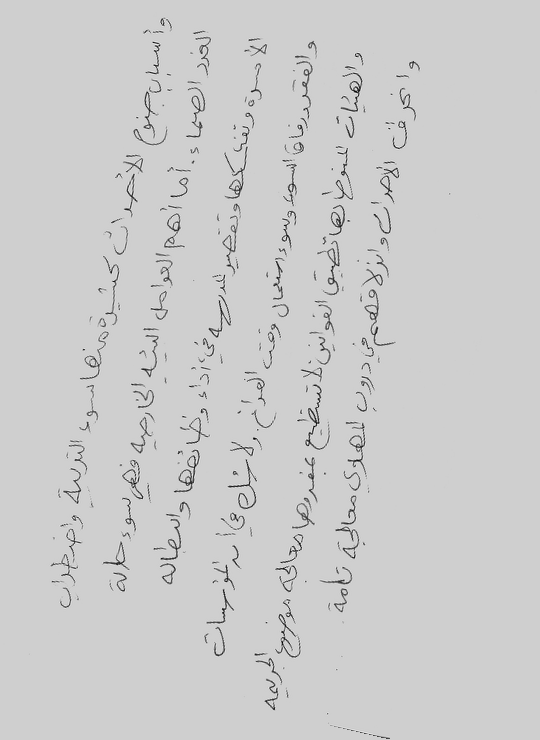 وأسباب جنوح الأحداث كثيرة منها سوء التربية واضطراب
الغدد الصماء. أما أهم العوامل البيئية الخارجية فهي سوء حالة
الأسرة وتفككها وتقصير المدرسة في أداء وظائفها والبطالة
والفقر ورفاق السوء وسوء استعمال وقت الفراغ. ولا شك في أن المؤسسات
والهيئات المنوط بها تطبيق القوانين لا تستطيع بمفردها معالجة موضوع الجريمة
وانحراف الأحداث وانزلاقهم في دروب المهاوى معالجة تامة.